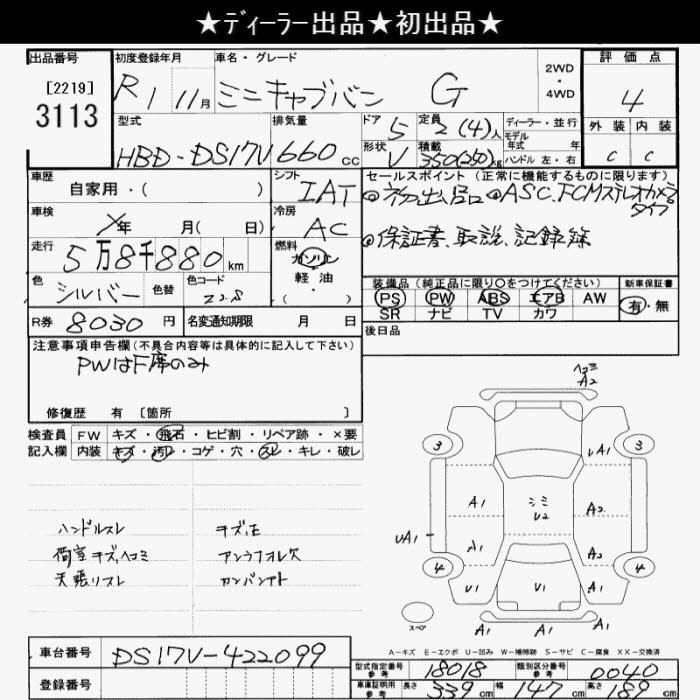 ★ディーラー出品★初出品★
出品番号 初度登録年月 車名・グレード 2WD・4WD 評価点
[2219]
3113
R1 11月 ミニキャブバン G 4
型式 排気量 ドア 5 定員 2(4)人 ディーラー・並行 外装 内装
モデル年式 年
HBD-DS17V 660cc 形状 V 積載 350(250)kg ハンドル 左・右 C C
車歴 自家用・( ) シフト IAT セールスポイント(正常に機能するものに限ります)
◎初出品 ◎ASC.FCMステレオカメラタイプ
車検 年 月( 日) 冷房 AC
◎保証書、取説、記録簿
走行 5万8千880km 燃料 ガソリン・軽油・( )
色 シルバー 色替 色コード Z28
装備品(純正品に限り〇をつけてください) 新車保証書
PS PW ABS エアB AW 有・無
SR ナビ TV カワ
R券 8030円 名変通知期限 月 日 後日品
注意事項申告欄(不具合内容等は具体的に記入して下さい)
PWはF席のみ
修復歴 有 [箇所 ]
検査員記入欄 FW キズ・飛石・ヒビ割・リペア跡・×要
内装 キズ・汚レ・コゲ・穴・スレ・キレ・破レ
ハンドルスレ キズ、モ
荷室キズ、ヘコミ アンヲフオレ欠
天張リスレ
ヘコミ
A2
3 3
uA1
A1 ミミ A2
U2
uA1
A1 A2
4 4
U1 U1 A1
A1 A1 A1
スペア
A-キズ E-エクボ U-凹み W-補修跡 S-サビ C-腐食 XX-交換済
車台番号 DS17V-422099
登録番号
型式指定番号 参考 18018 類別区分番号 参考 0040
車庫証明用 参考 長さ 339cm 幅 147cm 高さ 189cm